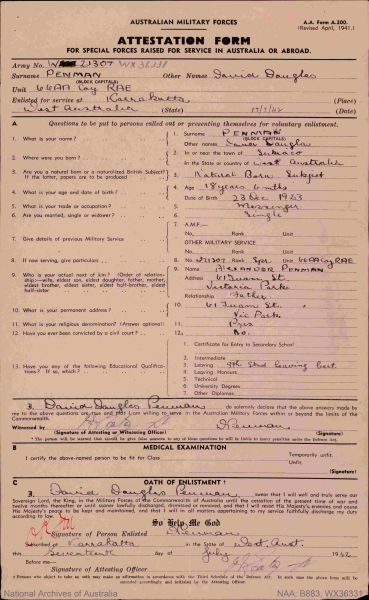 AUSTRALIAN MILITARY FORCES
A.A. Form A.200.
(Revised April, 1941.)
ATTESTATION FORM
FOR SPECIAL FORCES RAISED FOR SERVICE IN AUSTRALIA OR ABROAD.
Army No. 21307 WX36331
Surname PENMAN Other Names David Douglas
(BLOCK CAPITALS)
Unit 66AA Coy RAE
Enlisted for service at Karrakatta (Place)
West Australia 17/7/42 (Date)
A Questions to be put to persons called out or presenting themselves for voluntary enlistment.
1. What is your name? 1. Surname PENMAN
(BLOCK CAPITALS)
Other names David Douglas
2. Where were you born? 2. In or near the town of Subiaco
in the State or country of West Australia
3. Are you a natural born or a naturalized British Subject? If the latter, papers are to be produced 3. Natural Born Subject
4. What is your age and date of birth? 4. Age 18 years 6 mths
Date of Birth 23 Dec 1923
5. What is your trade or occupation? 5. Messenger
6. Are you married, single or widower? 6. Single
7. Give details of previous Military Service 7. A.M.F.—
No. Rank Unit
OTHER MILITARY SERVICE
No. Rank Unit
8. If now serving, give particulars 8. No. 21307 Rank Spr Unit 66AA Coy RAE
9. Who is your actual next of kin? (Order of relationship:—wife, eldest son, eldest daughter, father, mother, eldest brother, eldest sister, eldest half-brother, eldest half-sister 9. Name ALEXANDER PENMAN
Address 61 St.
Victoria Park
Relationship Father
10. What is your permanent address? 10. 61 St.
Vic Park
11. What is your religious denomination? (Answer optional) 11. Pres
12. Have you ever been convicted by a civil court? 12. No.
13. Have you any of the following Educational Qualifications? If so, which?
1. Certificate for Entry to Secondary School
2. Intermediate
3. Leaving 8th Std leaving Cert.
4. Leaving Honours
5. Technical
6. University Degrees
7. Other Diplomas
I, David Douglas Penman do solemnly declare that the above answers made by me to the above questions are true and that I am willing to serve in the Australian Military Forces within or beyond the limits of the Commonwealth.
Witnessed by Penman
(Signature of Attesting or Witnessing Officer) (Signature)
* The person will be warned that should he give false answers to any of these questions he will be liable to heavy penalties under the Defence Act.
B MEDICAL EXAMINATION
I certify the above-named person to be fit for Class Temporarily unfit.
Unfit.
(Signature)
C OATH OF ENLISTMENT†
I, David Douglas Penman swear that I will well and truly serve our Sovereign Lord, the King, in the Military Forces of the Commonwealth of Australia until the cessation of the present time of war and twelve months thereafter or until sooner lawfully discharged, dismissed or removed, and that I will resist His Majesty's enemies and cause His Majesty's peace to be kept and maintained, and that I will in all matters appertaining to my service faithfully discharge my duty according to law.
So Help Me God
Signature of Person Enlisted Penman
Subscribed at Karrakatta in West Aust.
this Seventeenth day of July 1942
Before me—
Signature of Attesting Officer
† Persons who object to take an oath may make an affirmation in accordance with the Third Schedule of the Defence Act. In such case the above form will be amended accordingly and initialled by the Attesting Officer.
National Archives of Australia
NAA: B883, WX36331